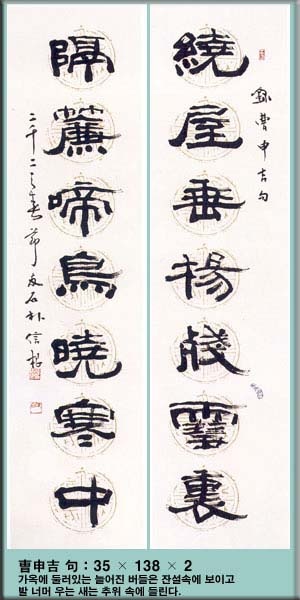 繞屋垂楊殘雪裏
錄曹申吉句
隔簾啼鳥曉寒中
曺申吉 句 : 35 × 138 × 2
가옥에 둘러있는 늘어진 버들은 잔설속에 보이고
발 너머 우는 새는 추위 속에 들린다.